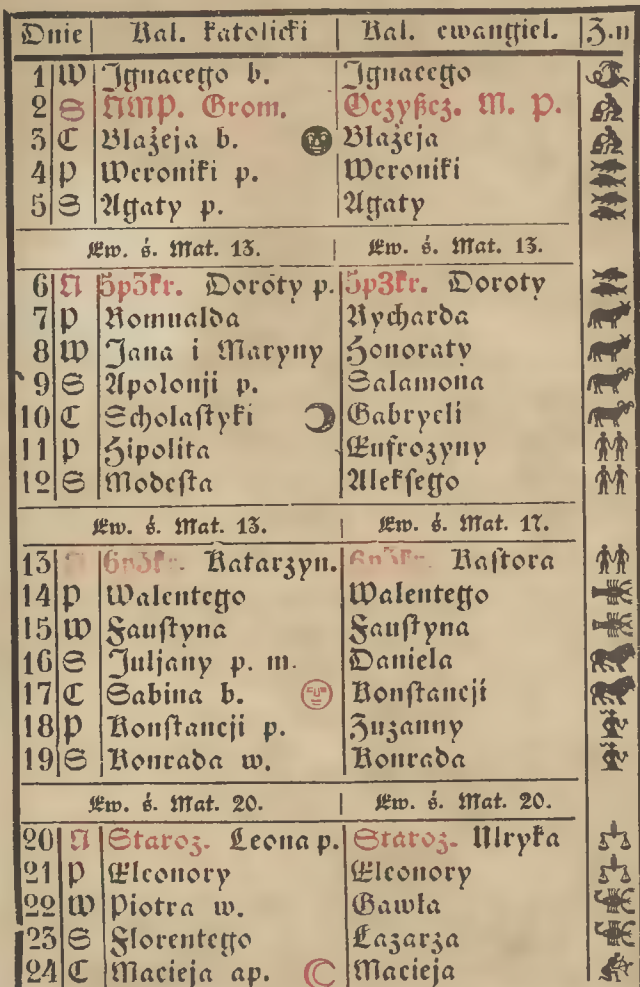 Dnie Kal. katolicki Kal. ewangiel. Z.n
1 W Ignacego b. Ignacego
2 S NMP. Grom. Oczyszcz. M. P.
3 C Błażeja b. Błażeja
4 P Weroniki p. Weroniki
5 S Agaty p. Agaty
Ew. ś. Mat. 13. Ew. ś. Mat. 13.
6 N 5p3kr. Doroty p. 5p3kr. Doroty
7 P Romualda Rycharda
8 W Jana i Maryny Honoraty
9 S Apolonji p. Salamona
10 C Scholastyki Gabryeli
11 P Hipolita Eufrozyny
12 S Modesta Aleksego
Ew. ś. Mat. 13. Ew. ś. Mat. 17.
13 N 6p3kr. Katarzyn. 6p3kr. Kastora
14 P Walentego Walentego
15 W Faustyna Faustyna
16 S Juljany p. m. Daniela
17 C Sabina b. Konstancji
18 P Konstancji p. Zuzanny
19 S Konrada w. Konrada
Ew. ś. Mat. 20. Ew. ś. Mat. 20.
20 N Staroz. Leona p. Staroz. Ulryka
21 P Eleonory Eleonory
22 W Piotra w. Gawła
23 S Florentego Łazarza
24 C Macieja ap. Macieja